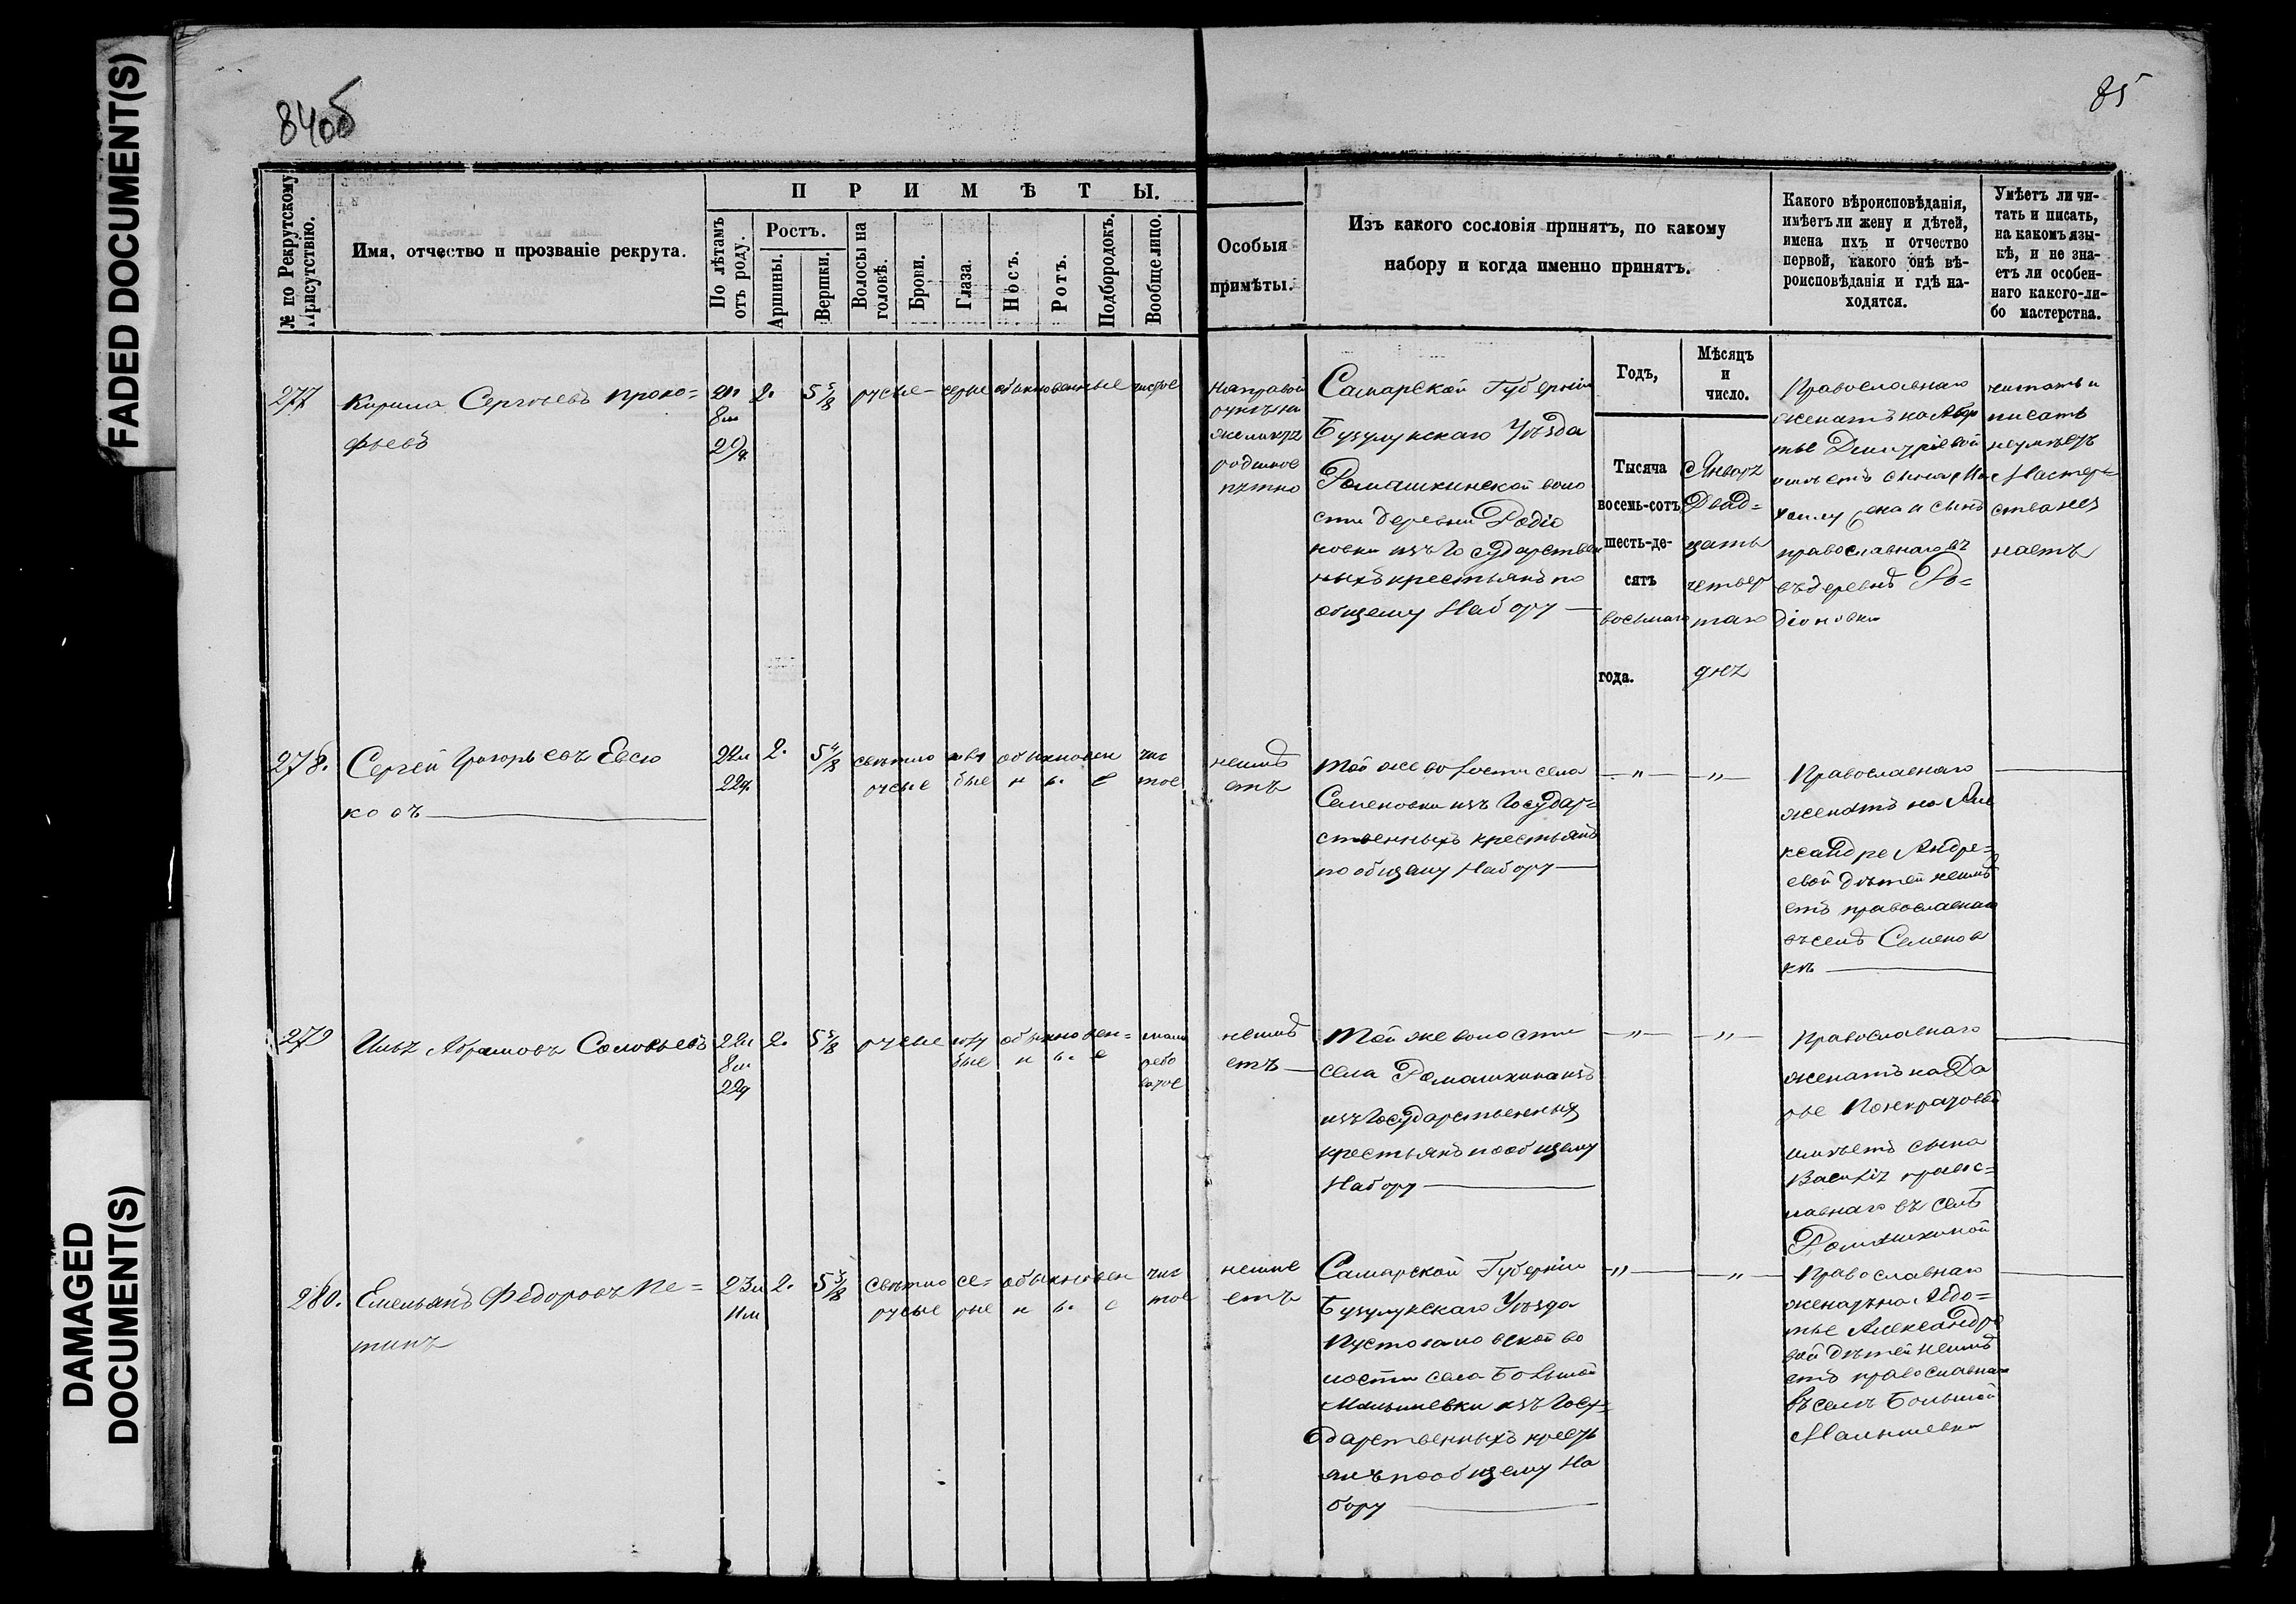 FADED DOCUMENT(S)
DAMAGED
DOCUMENT(S)
84об
85
№ по Рекрутскому
Присутствію.
Имя, отчество и прозваніе рекрута.
ПРИМѢТЫ.
По лѣтамъ
отъ роду.
Ростъ.
Аршины.
Вершки.
Волосы на
головѣ.
Брови.
Глаза.
Носъ.
Ротъ.
Подбородокъ.
Вообще лицо.
Особыя
примѣты.
Изъ какого сословія принятъ, по какому
набору и когда именно принятъ.
Какого вѣроисповѣданія,
имѣетъ ли жену и дѣтей,
имена ихъ и отчество
первой, какого онѣ вѣ-
роисповѣданія и гдѣ на-
ходятся.
Умѣетъ ли чи-
тать и писать,
на какомъ язы-
кѣ, и не зна-
етъ ли особен-
наго какого-ли-
бо мастерства.
Годъ,
Мѣсяцъ
и
число.
277
Кирила Сергѣевъ Проко=
фьевъ
8м
2.
5 5/8
русые
серые
обыкновенные
чистое
на правой
рукѣ на
родимое
пятно
Самарской Губерніи
Бузулукскаго Уѣзда
Ромашкинской воло
сти деревни Родіо
новки изъ Государствен
ныхъ крестьянъ по
общему Набору
Тысяча
восемь-сотъ
шесть-де-
сятъ
восьмаго
года.
Января
Двад=
цать
четвер
таго
дня
Православнаго
женатъ на Авдо
тье Дмитріевой
имѣетъ сына Ми
хаилу жена и сынъ
православнаго въ
въ деревнѣ Ро=
діоновки
читать и
писать
неумѣетъ
Мастер=
ства нез
наетъ
278.
Сергей Григорьевъ Евсю
ковъ
22л
22д
2.
5 4/8
свѣтло
русые
голу
бые
обыкновен
н ы е
чис
тое
неимѣ
етъ
Той же волости села
Семеновки изъ Государ=
ственныхъ крестьянъ
по общему Набору
"
"
Православнаго
женатъ на Але
ксандре Андре=
евой дѣтей неимѣ
етъ православнаго
въ селѣ Семенов
кѣ
279
Илья Абрамовъ Соловьевъ
22л
8м
22д
2.
5 5/8
русые
голу
бые
обыкновен=
н ы е
неимѣ
етъ
Той же волости
села Ромашкина изъ
изъ Государственныхъ
крестьянъ по общему
Набору
"
"
Православнаго
женатъ на Да
рье Понкратовой
имѣетъ сына
Василія правос=
лавнаго въ селѣ
Ромашкиной
280.
Емельянъ Федоровъ Пе=
тинъ
23л
11м
2.
5 3/8
Свѣтло
русые
се=
рые
обыкновен
н ы е
чис
тое
неиме
етъ
Самарской Губерніи
Бузулукскаго Уѣзда
во
лости села Большой
Малышевки изъ Госу=
дарственныхъ кресть
янъ по общему На
бору
"
"
Православнаго
женатъ на Авдо=
тье Александро
вой дѣтей неимѣ
етъ православнаго
въ селѣ Большой
Малышевки